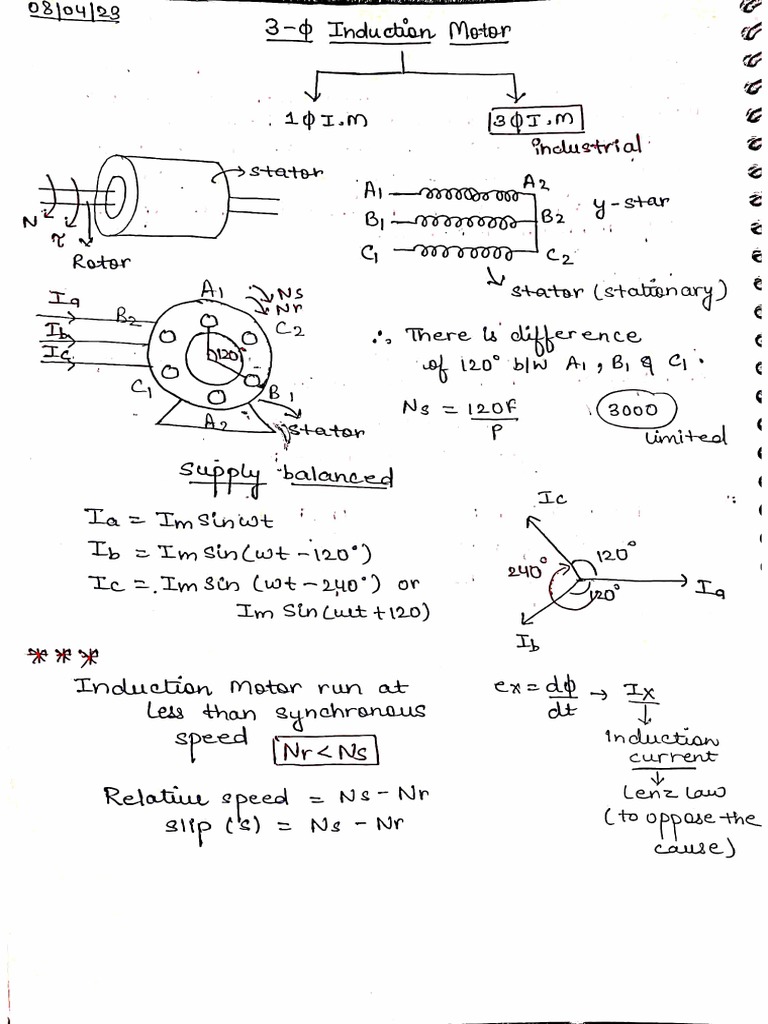 08/04/23
3-ϕ Induction Motor
1ϕ I.M
3ϕ I.M
industrial
stator
N
τ
Rotor
A1
A2
B1
B2
C1
C2
y-star
stator (stationary)
Ia
Ib
Ic
A1
B2
C1
A2
B1
C2
Ns
Nr
120°
stator
∴ There is difference
of 120° b/w A1, B1 & C1.
Ns = 120F/P
3000
limited
supply balanced
Ia = Im Sin ωt
Ib = Im Sin (ωt - 120°)
Ic = Im Sin (ωt - 240°) or
Im Sin (ωt + 120)
Ic
120°
240°
120°
Ia
Ib
***
Induction Motor run at
less than synchronous
speed Nr < Ns
Relative speed = Ns - Nr
slip (s) = Ns - Nr
ex = dϕ/dt → Ix
induction
current
Lenz Law
(to oppose the
cause)